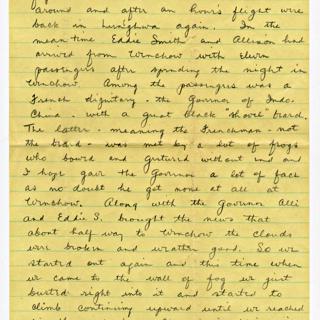 around and after an hour's flight were
back in Lunghwa again. In the
mean time Eddie Smith and Allison had
arrived from Wenchow with eleven
passengers after spending the night in
Wenchow. Among the passengers was a
French dignitary - the Govenor of Indo-
China - with a great black "shovel" beard.
The latter - meaning the Frenchman - not
the beard - was met by a lot of frogs
who bowed and gestured without end and
I hope gave the Govenor a lot of face
as no doubt he got none at all at
Wenchow. Along with the Govenor Alli
and Eddie S. brought the news that
about half way to Wenchow the clouds
were broken and weather good. So we
started out again and this time when
we came to the wall of fog we just
busted right into it and started to
climb continuing upward until we reached